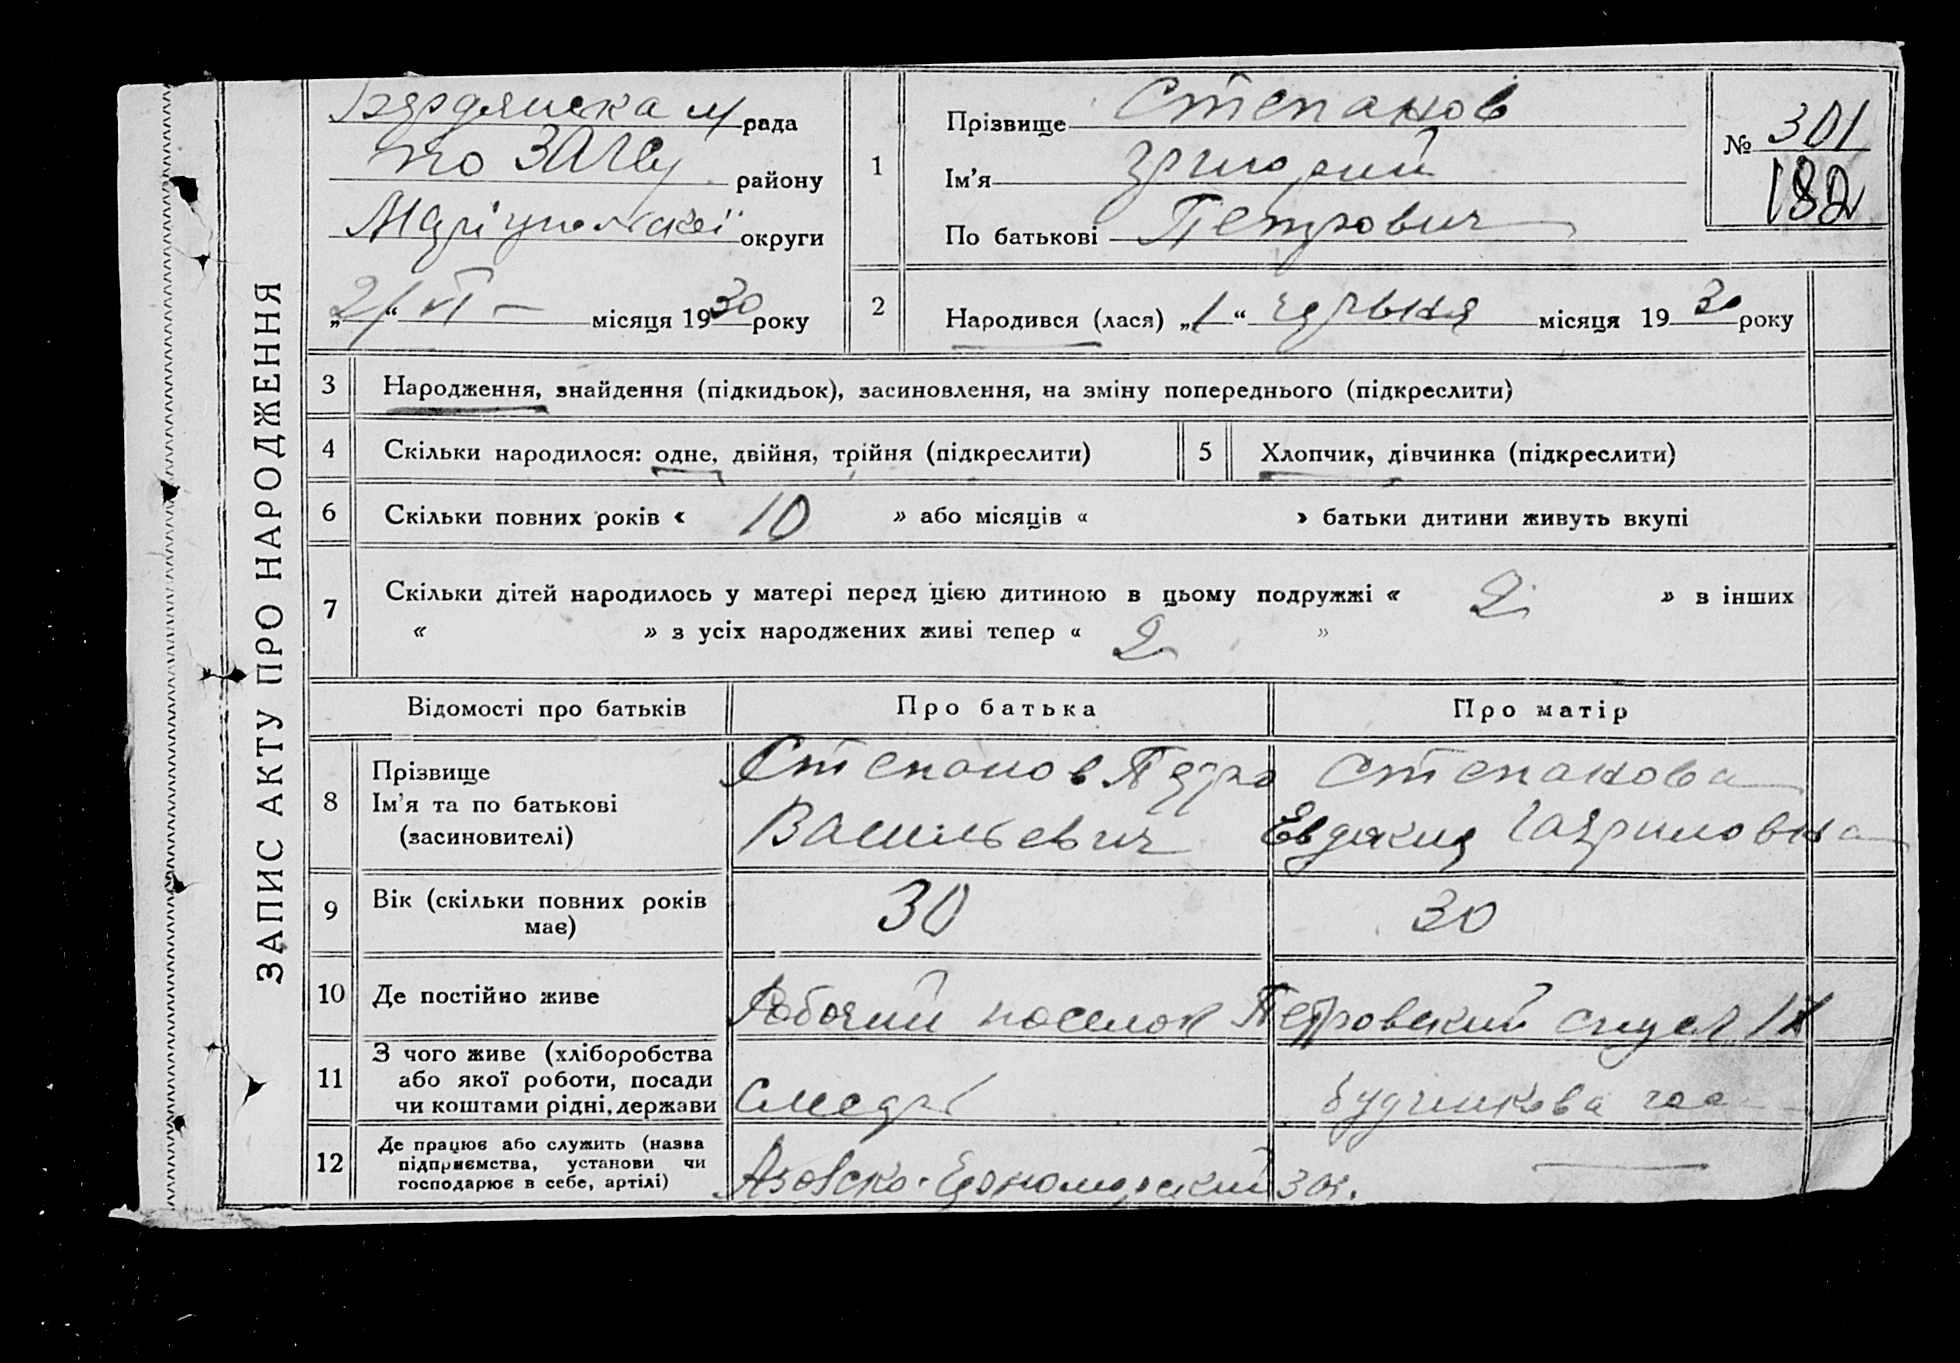 ЗАПИС АКТУ ПРО НАРОДЖЕННЯ
Бердянска м/рада
по ЗАГСу району
Маріупольскої округи
„21“ VI — місяця 1930 року
1
Прізвище Степанов
Ім’я Григорий
По батькові Петрович
№ 301
182
2
Народився (лася) „1“ червня місяця 1930 року
3 Народження, знайдення (підкидьок), засиновлення, на зміну попереднього (підкреслити)
4 Скільки народилося: одне, двійня, трійня (підкреслити)
5 Хлопчик, дівчинка (підкреслити)
6 Скільки повних років « 10 » або місяців « » батьки дитини живуть вкупі
7 Скільки дітей народилось у матері перед цією дитиною в цьому подружжі « 2 » в інших
« » з усіх народжених живі тепер « 2 »
Відомості про батьків Про батька Про матір
8 Прізвище
Ім’я та по батькові
(засиновителі)
Степанов Петро
Васильевич
Степанова
Евдокия Гавриловна
9 Вік (скільки повних років
має)
30
30
10 Де постійно живе
Робочий поселок Петровский
11 З чого живе (хліборобства
або якої роботи, посади
чи коштами рідні, держави
12 Де працює або служить (назва
підприємства, установи чи
господарює в себе, артілі)
Азовско-Черноморский